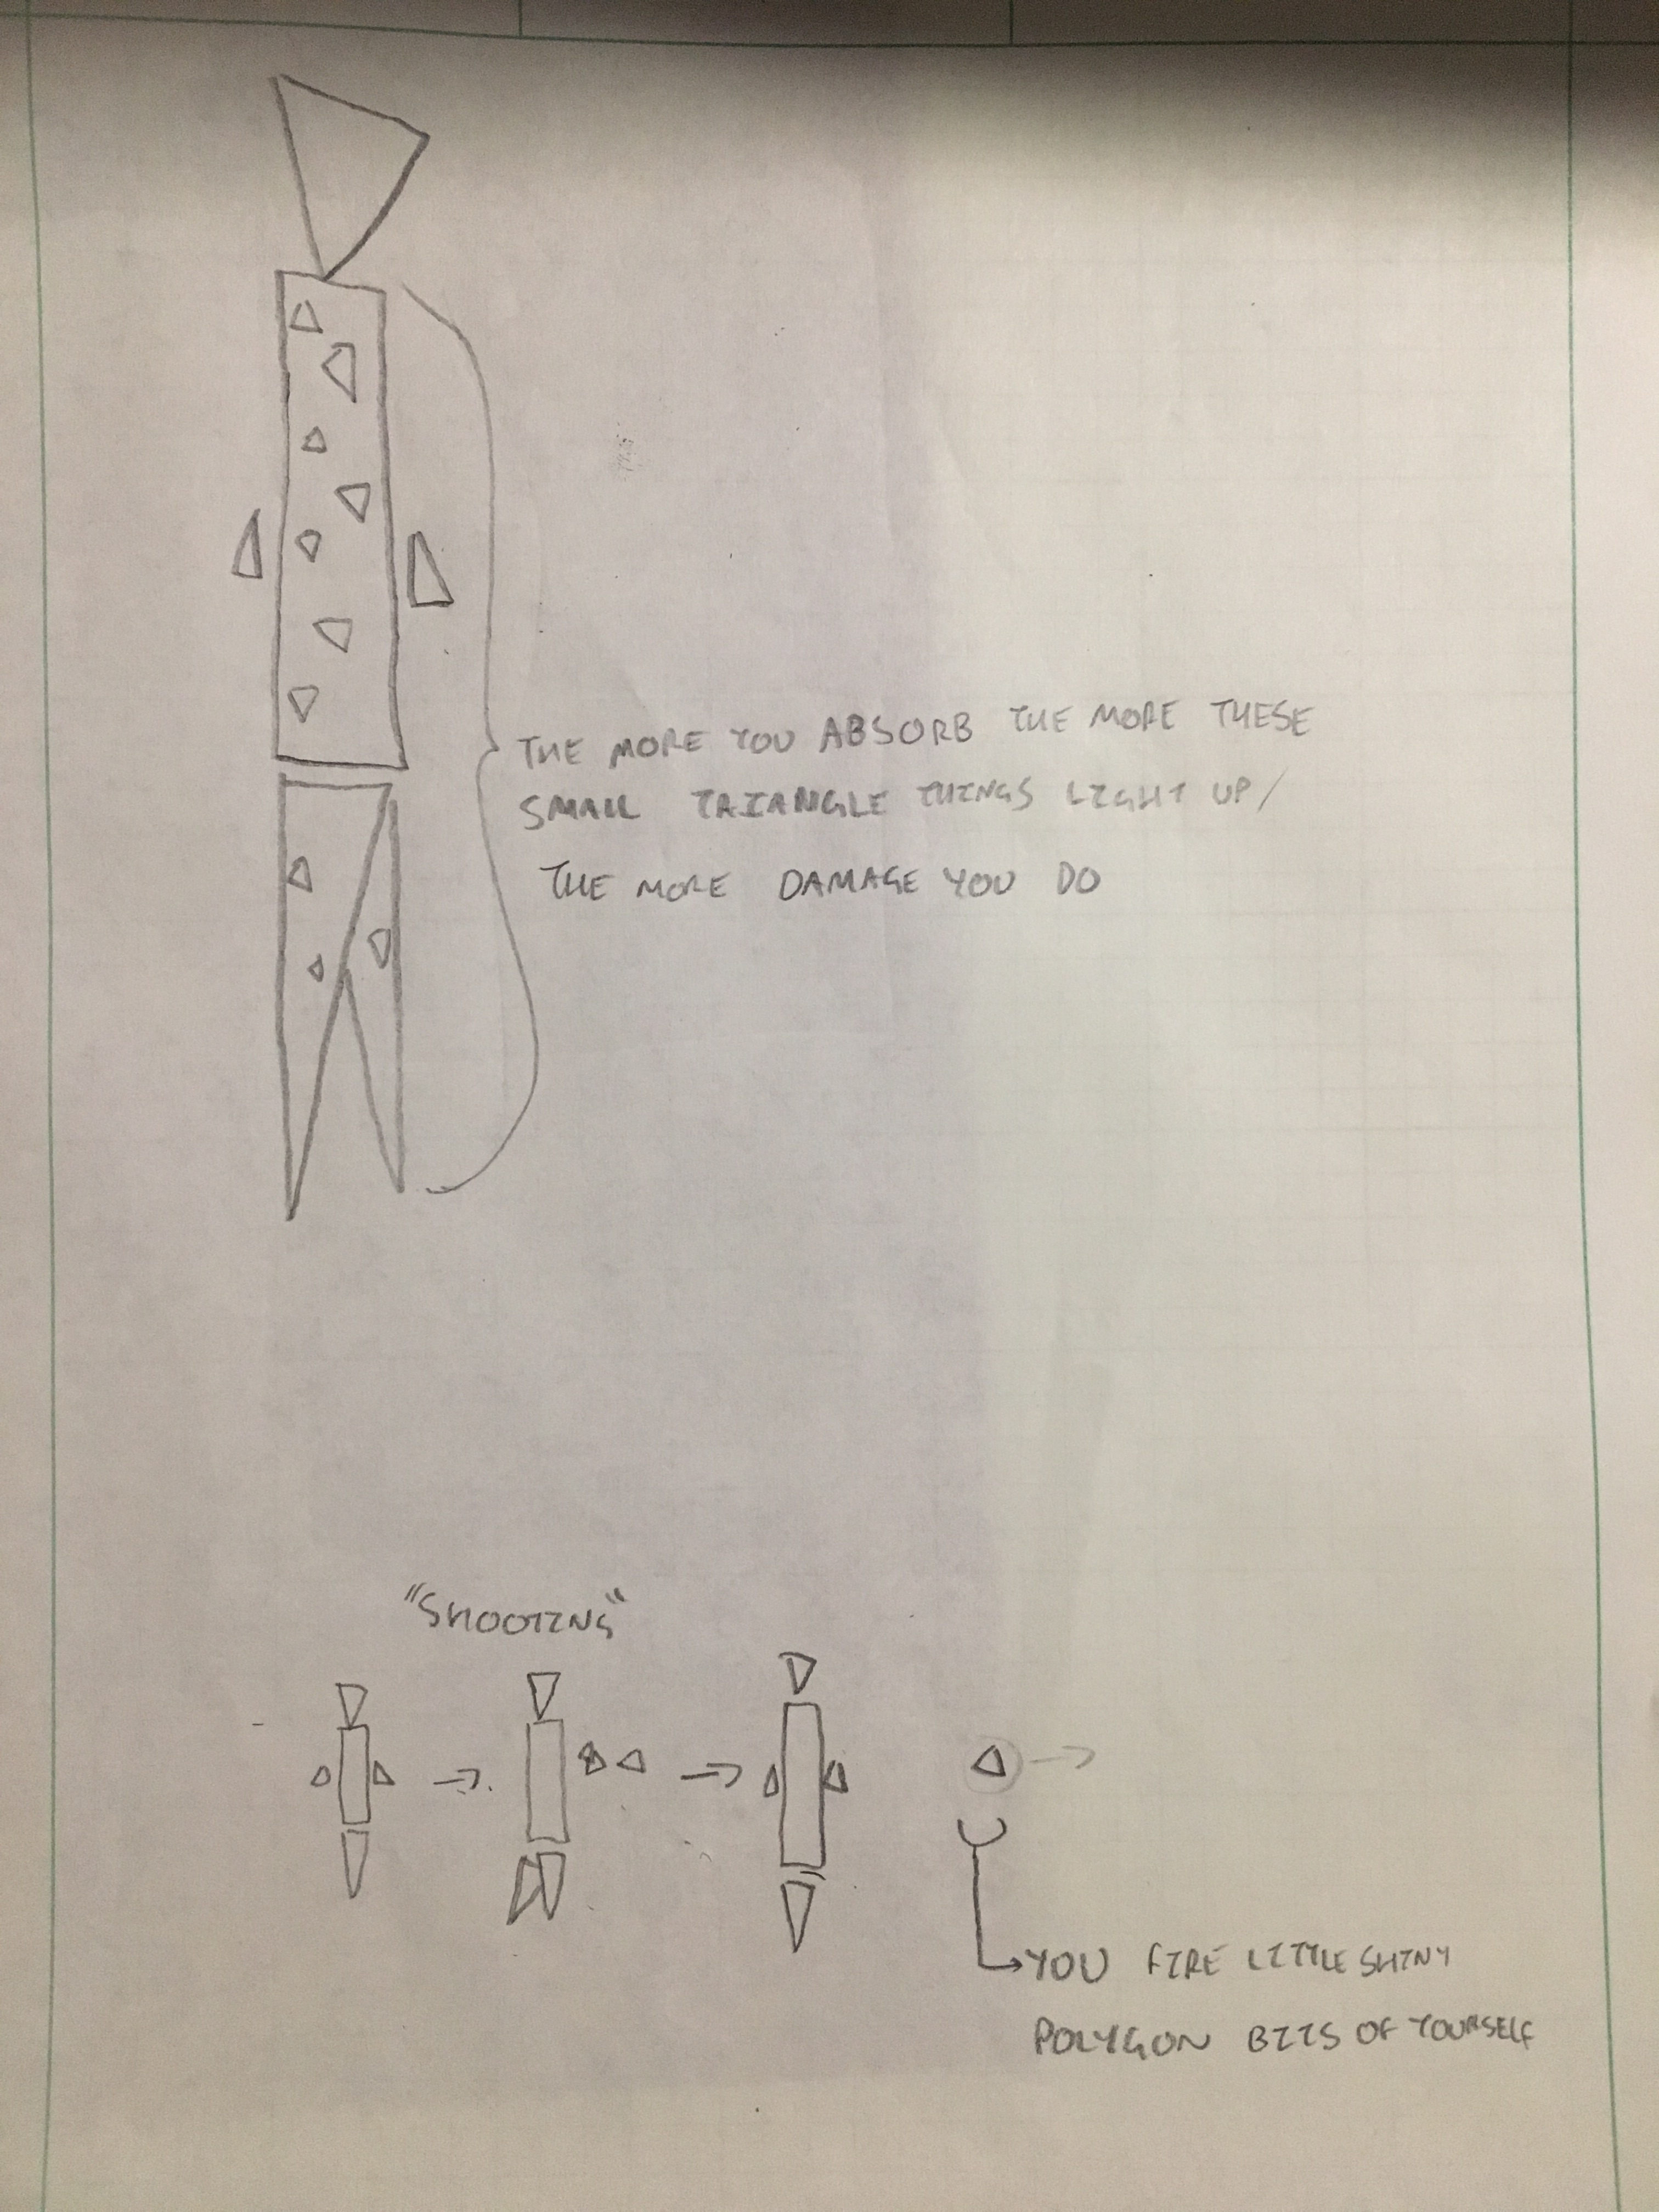 THE MORE YOU ABSORB THE MORE THESE
SMALL TRIANGLE THINGS LIGHT UP/
THE MORE DAMAGE YOU DO
"SHOOTING"
YOU FIRE LITTLE SHINY
POLYGON BITS OF YOURSELF